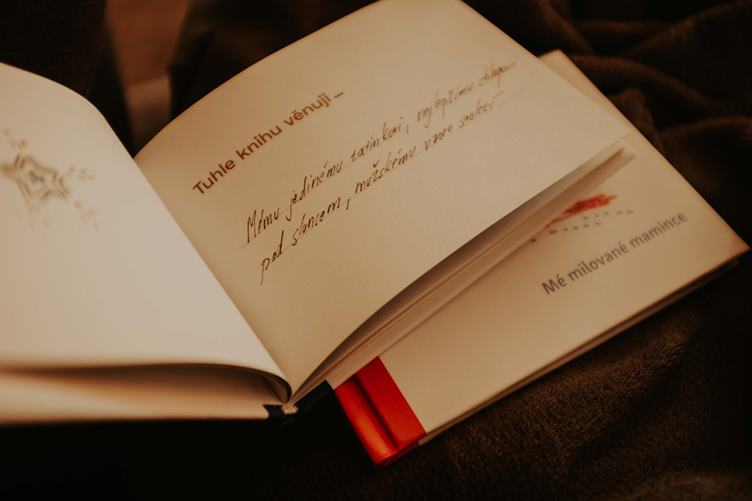 Tuhle knihu věnuji...
Mému jedinému tatínkovi, nejlepšímu chlapovi
pod sluncem, mužskému vzoru století
Mé milované mamince